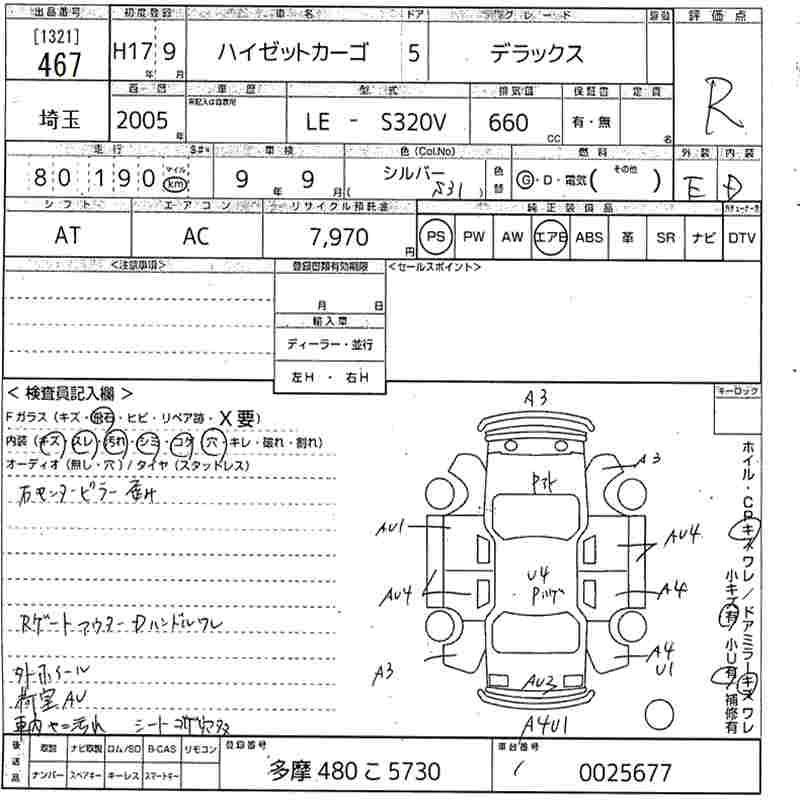 出品番号 初度登録 車名 ドア グレード 評価点
[1321]
467 H17年 9月 ハイゼットカーゴ 5 デラックス R
西暦 車歴 型式 排気量 保証書 定員
埼玉 2005年 LE - S320V 660 CC 有・無 名
走行 車検 色(Col.No) 燃料 外装 内装
80,190 マイル km 9年 9月 シルバー ( S31 ) 色替 G・D・電気( その他 ) E D
シフト エアコン リサイクル預託金 純正装備品
AT AC 7,970円 PS PW AW エアB ABS 革 SR ナビ DTV
<注意事項> 登録書類有効期限 <セールスポイント>
月 日
輸入車
ディーラー・並行
左H・右H
<検査員記入欄> キーロック
Fガラス(キズ・飛石・ヒビ・リペア跡・X要)
内装(キズ・スレ・汚れ・シミ・コゲ・穴・キレ・破れ・割れ)
オーディオ(無し・穴)/タイヤ(スタッドレス)
右センターピラー
Rゲートアウター Dハンドルワレ
外ホイール
荷室AU
車内ヤニ汚れ シート
A3
A3
AU1
AU4
U4
AU4
A4
A3
A4
U1
AU2
A4U1
ホイル・CPキズワレ/ドアミラーキズワレ
小キズ有/小U有/補修有
後送品 取説 ナビ取説 ロム/SD B-CAS リモコン
ナンバー スペアキー キーレス スマートキー
登録番号 車台番号
多摩 480 こ 5730 0025677